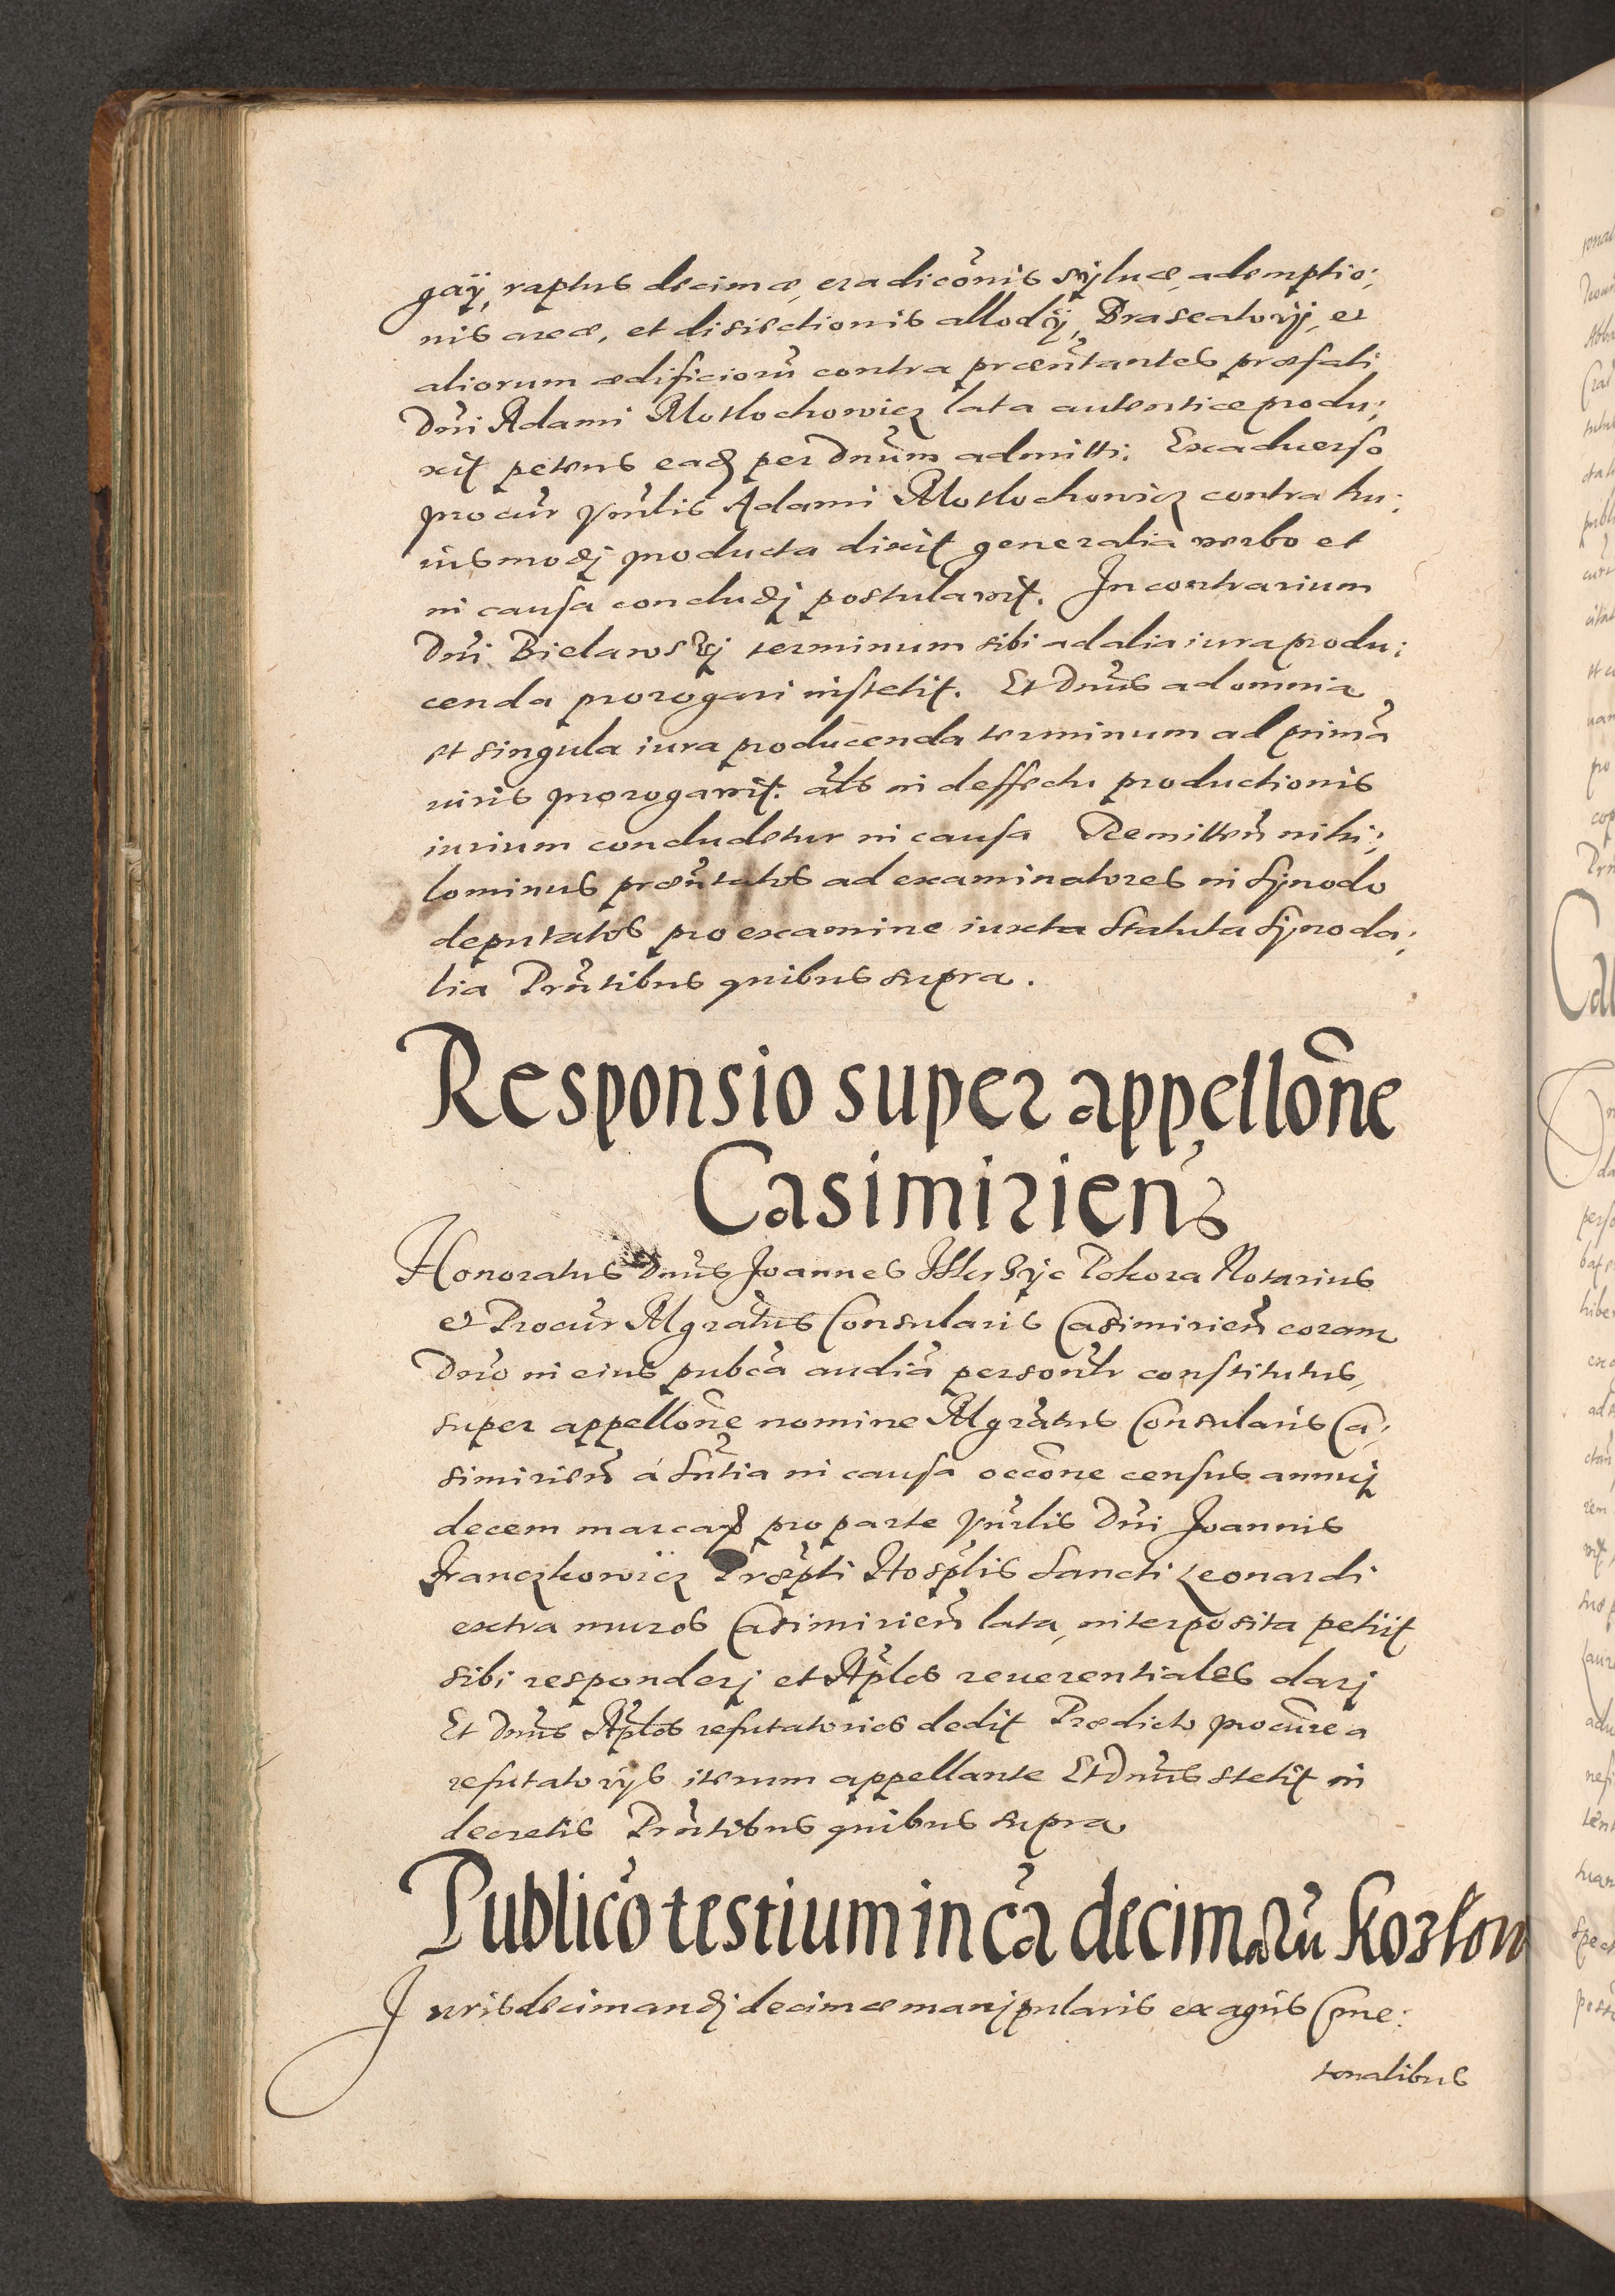 gaÿ, raptus decimæ, eradicōnis sÿluæ, ademptio:
nis areæ, et disiectionis allodÿ, Braseatorÿ, et
aliorum ædificiorū contra præn̄tantes præfati
Dn̄i Adami Motlochowicz lata autentice produ:
xit petens eadē per Dnūm admitti. Ex aduerso
procūr Vn̄lis Adami Motlochowicz contra hu:
iusmodj producta dixit generalia verbo et
in causa concludj postulavit. In contrarium
Dn̄i Bielawskj terminum sibi ad alia iura produ:
cenda prorogari institit. Et Dnūs ad omnia
et singula iura producenda terminum ad primā
iuris prorogavit. al̄s in deffectu productionis
iurium concludetur in causa Remitten̄ nihi:
lominus præn̄tatos ad examinatores in Sÿnodo
deputatos pro examine iuxta Statuta Sÿnoda:
lia Prn̄tibus quibus supra.
Responsio super appellōne
Casimirien̄s
Honoratus Dnūs Joannes Pokora Notarius
et Procūr Mgrātus Consularis Casimirien̄ coram
Dn̄o in eius pub̄ca audiā personl̄r constitutus,
super appellōne nomine Mgrātus Consularis Ca:
simirien̄ á Sn̄tia in causa occōne census annuj
decem marcar̄ pro parte Vn̄rlis Dn̄i Joannis
Franczkowicz Præp̄ti Hosp̄lis Sancti Leonardi
extra muros Casimirien̄ lata, interposita petiit
sibi responderj et Ap̄los reuerentiales darj
Et Dnūs Ap̄los refutatorios dedit Prædicto procūre a
refutatorÿs iterum appellante Et Dnūs stetit in
decretis Prn̄tibus quibus supra
Publicō testium in cā decimarū Kozlow
Juris decimandj decimæ manipularis ex agris Cme:
tonalibus